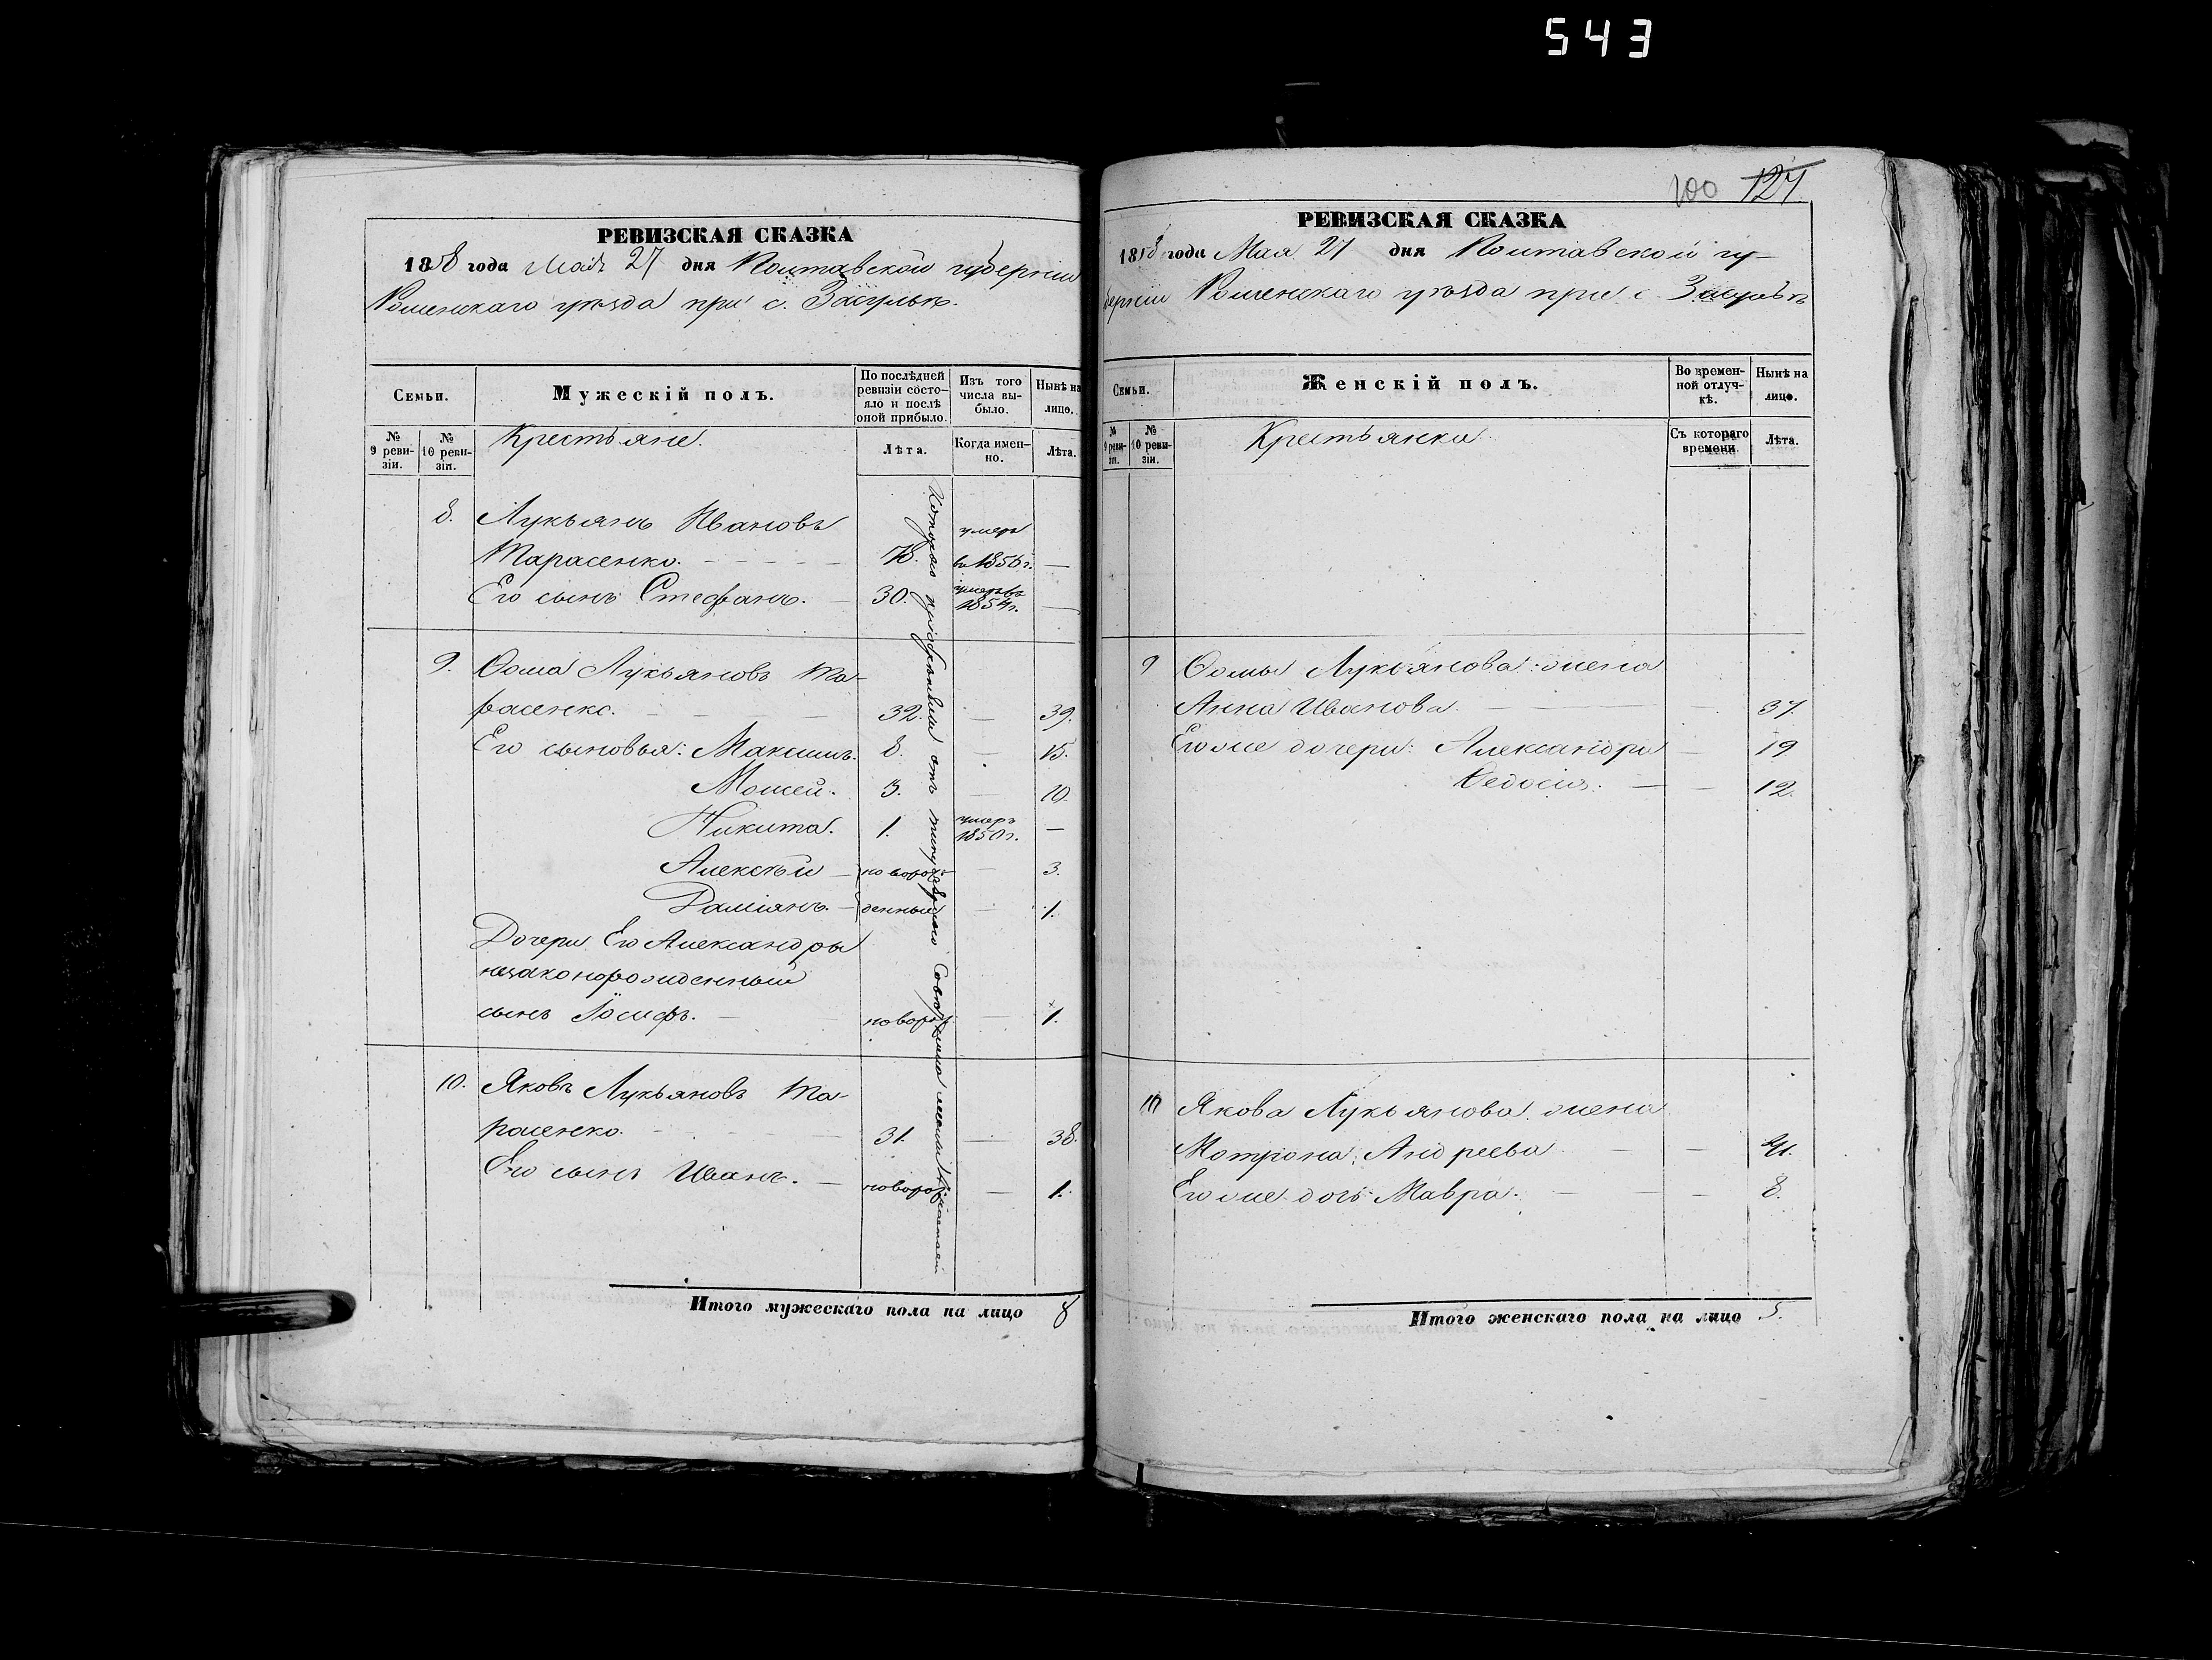 543
РЕВИЗСКАЯ СКАЗКА
1858 года Мая 27 дня Полтавской губерніи
Роменскаго уѣзда при с. Засульѣ.
Семьи.
Мужескій полъ.
По послѣдней ревизіи состояло и послѣ оной прибыло.
Изъ того числа выбыло.
Нынѣ на лицо.
№ 9 ревизіи.
№ 10 ревизіи.
Крестьяне.
Лѣта.
Когда именно.
Лѣта.
8. Лукьянъ Ивановъ умеръ
Тарасенко. 78. въ 1856 г. —
Его сынъ Стефанъ. 30. умеръ въ 1854 г. —
9. Ѳома Лукьяновъ Та-
расенко. 32. — 39.
Его сыновья: Максимъ. 8. — 15.
Мошей. 3. — 10.
Никита. 1. умеръ 1850 г. —
Алексѣй — новорож- — 3.
Даміянъ. — денные — 1.
Дочери Его Александры
незаконорожденный
сынъ Іосифъ. — новорож. — 1.
10. Яковъ Лукьяновъ Та-
расенко. 31. — 38.
Его сынъ Иванъ. — новорож. — 1.
Которые пріобрѣтены отъ
Итого мужескаго пола на лицо 8
100 127.
РЕВИЗСКАЯ СКАЗКА
1858 года Мая 27 дня Полтавской гу-
берніи Роменскаго уѣзда при с. Засульѣ
Семьи.
Женскій полъ.
Во временной отлучкѣ.
Нынѣ на лицо.
№ 9 ревизіи.
№ 10 ревизіи.
Крестьянки
Съ котораго времени.
Лѣта.
9 Ѳомы Лукьянова жена
Анна Иванова. — 37.
Его же дочери: Александра — 19
Ѳедосія. — — 12.
10 Якова Лукьянова жена
Мотрона Андреева — — 41.
Его же дочь Мавра. — — 8.
Итого женскаго пола на лицо 5.